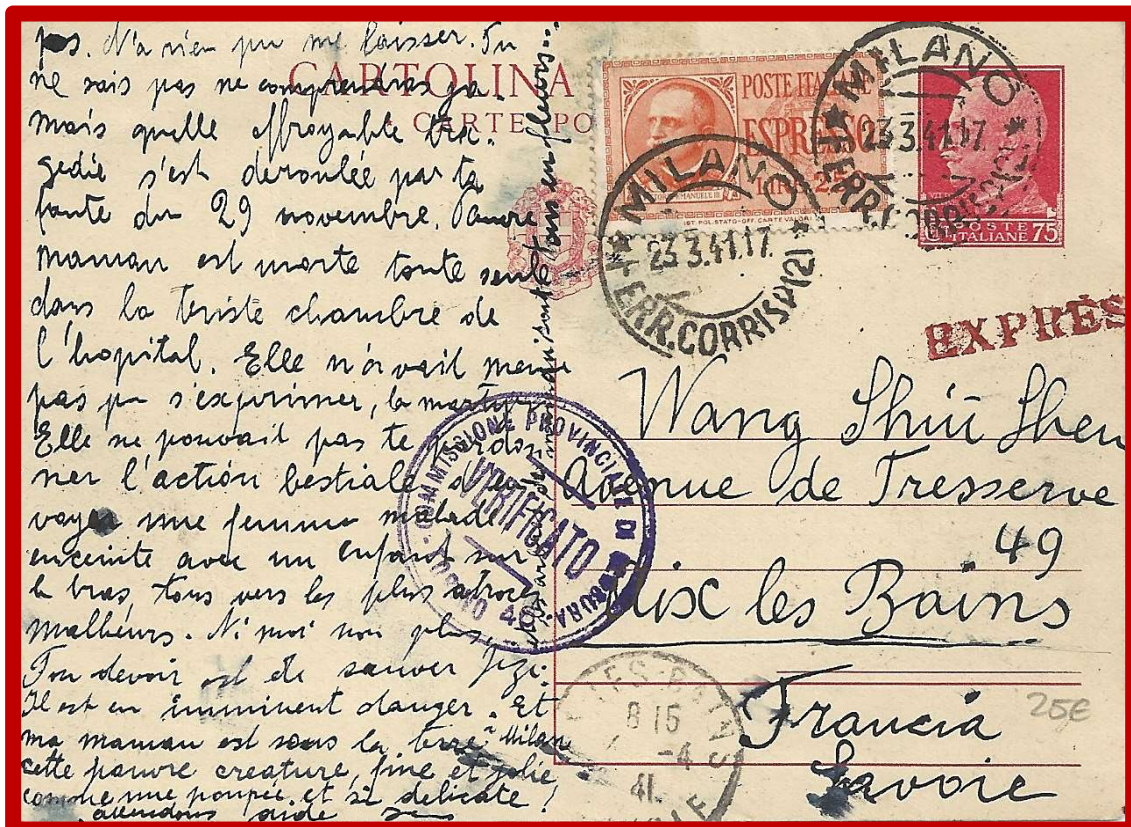 pas. N'a rien pu me laisser. Tu
ne sais pas ne comprendras ja-
mais quelle effroyable tra-
gedie s'est deroulée par ta
faute du 29 novembre. Pauvre
maman est morte toute seule
dans la triste chambre de
l'hopital. Elle n'avait meme
pas pu s'exprimer, la martyre
Elle ne pouvait pas te pardon
ner l'action bestiale d'en
voyer une femme malade
enceinte avec un enfant sur
le bras, tous vers les plus atroces
malheurs. Ni moi non plus
Ton devoir est de sauver
Il est en imminent danger. Et
ma maman est sous la terre à Milan
cette pauvre creature, fine et jolie
comme une poupée et si delicate!
attendons aide
tous en fleurs...
CARTOLINA
CARTE PO
POSTE ITALIANE
ESPRESSO
LIRE 2,50
IST. POL. STATO-OFF. CARTE VALORI
MILANO
23.3.41.17.
FERR. CORRISP. (2)
MILANO
23.3.41.17.
FERR. CORRISP.
POSTE
ITALIANE 75
EXPRES
COMMISSIONE PROVINCIALE DI CENSURA
VERIFICATO
Wang Shui Shen
Avenue de Tresserve
49
Aix les Bains
Francia
Savoie
25€
AIX-LES-BAINS
8 15
-4
41